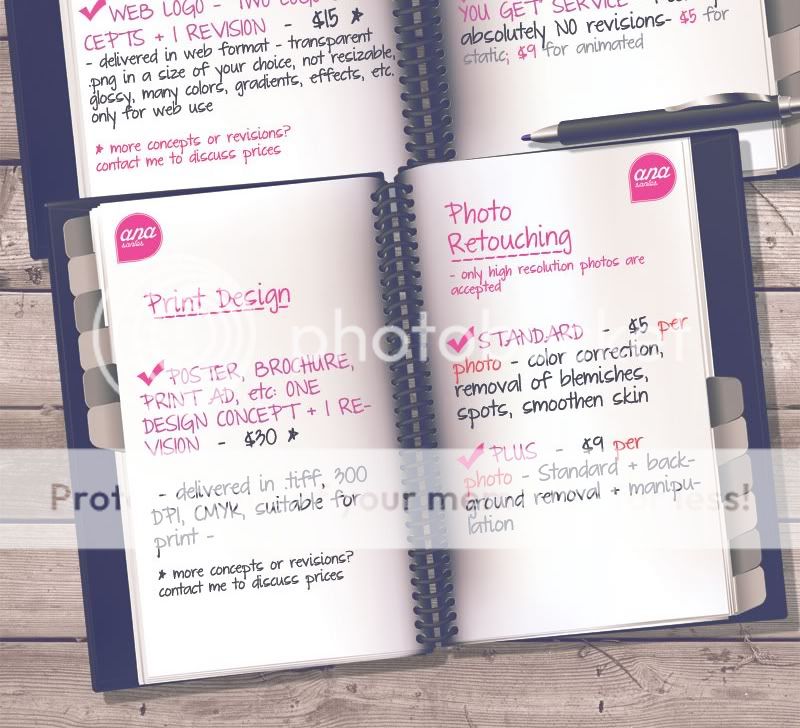 WEB LOGO - TWO LOGO
CEPTS + 1 REVISION - $15 *
- delivered in web format - transparent
.png in a size of your choice, not resizable,
glossy, many colors, gradients, effects, etc.
only for web use
* more concepts or revisions?
contact me to discuss prices
YOU GET SERVICE -
absolutely NO revisions- $5 for
static; $9 for animated
ana
santos
Print Design
POSTER, BROCHURE,
PRINT AD, etc: ONE
DESIGN CONCEPT + 1 RE-
VISION - $30 *
- delivered in .tiff, 300
DPI, CMYK, suitable for
print -
* more concepts or revisions?
contact me to discuss prices
ana
santos
Photo
Retouching
- only high resolution photos are
accepted
STANDARD - $5 per
photo - color correction,
removal of blemishes,
spots, smoothen skin
PLUS - $9 per
photo - Standard + back-
ground removal + manipu-
lation